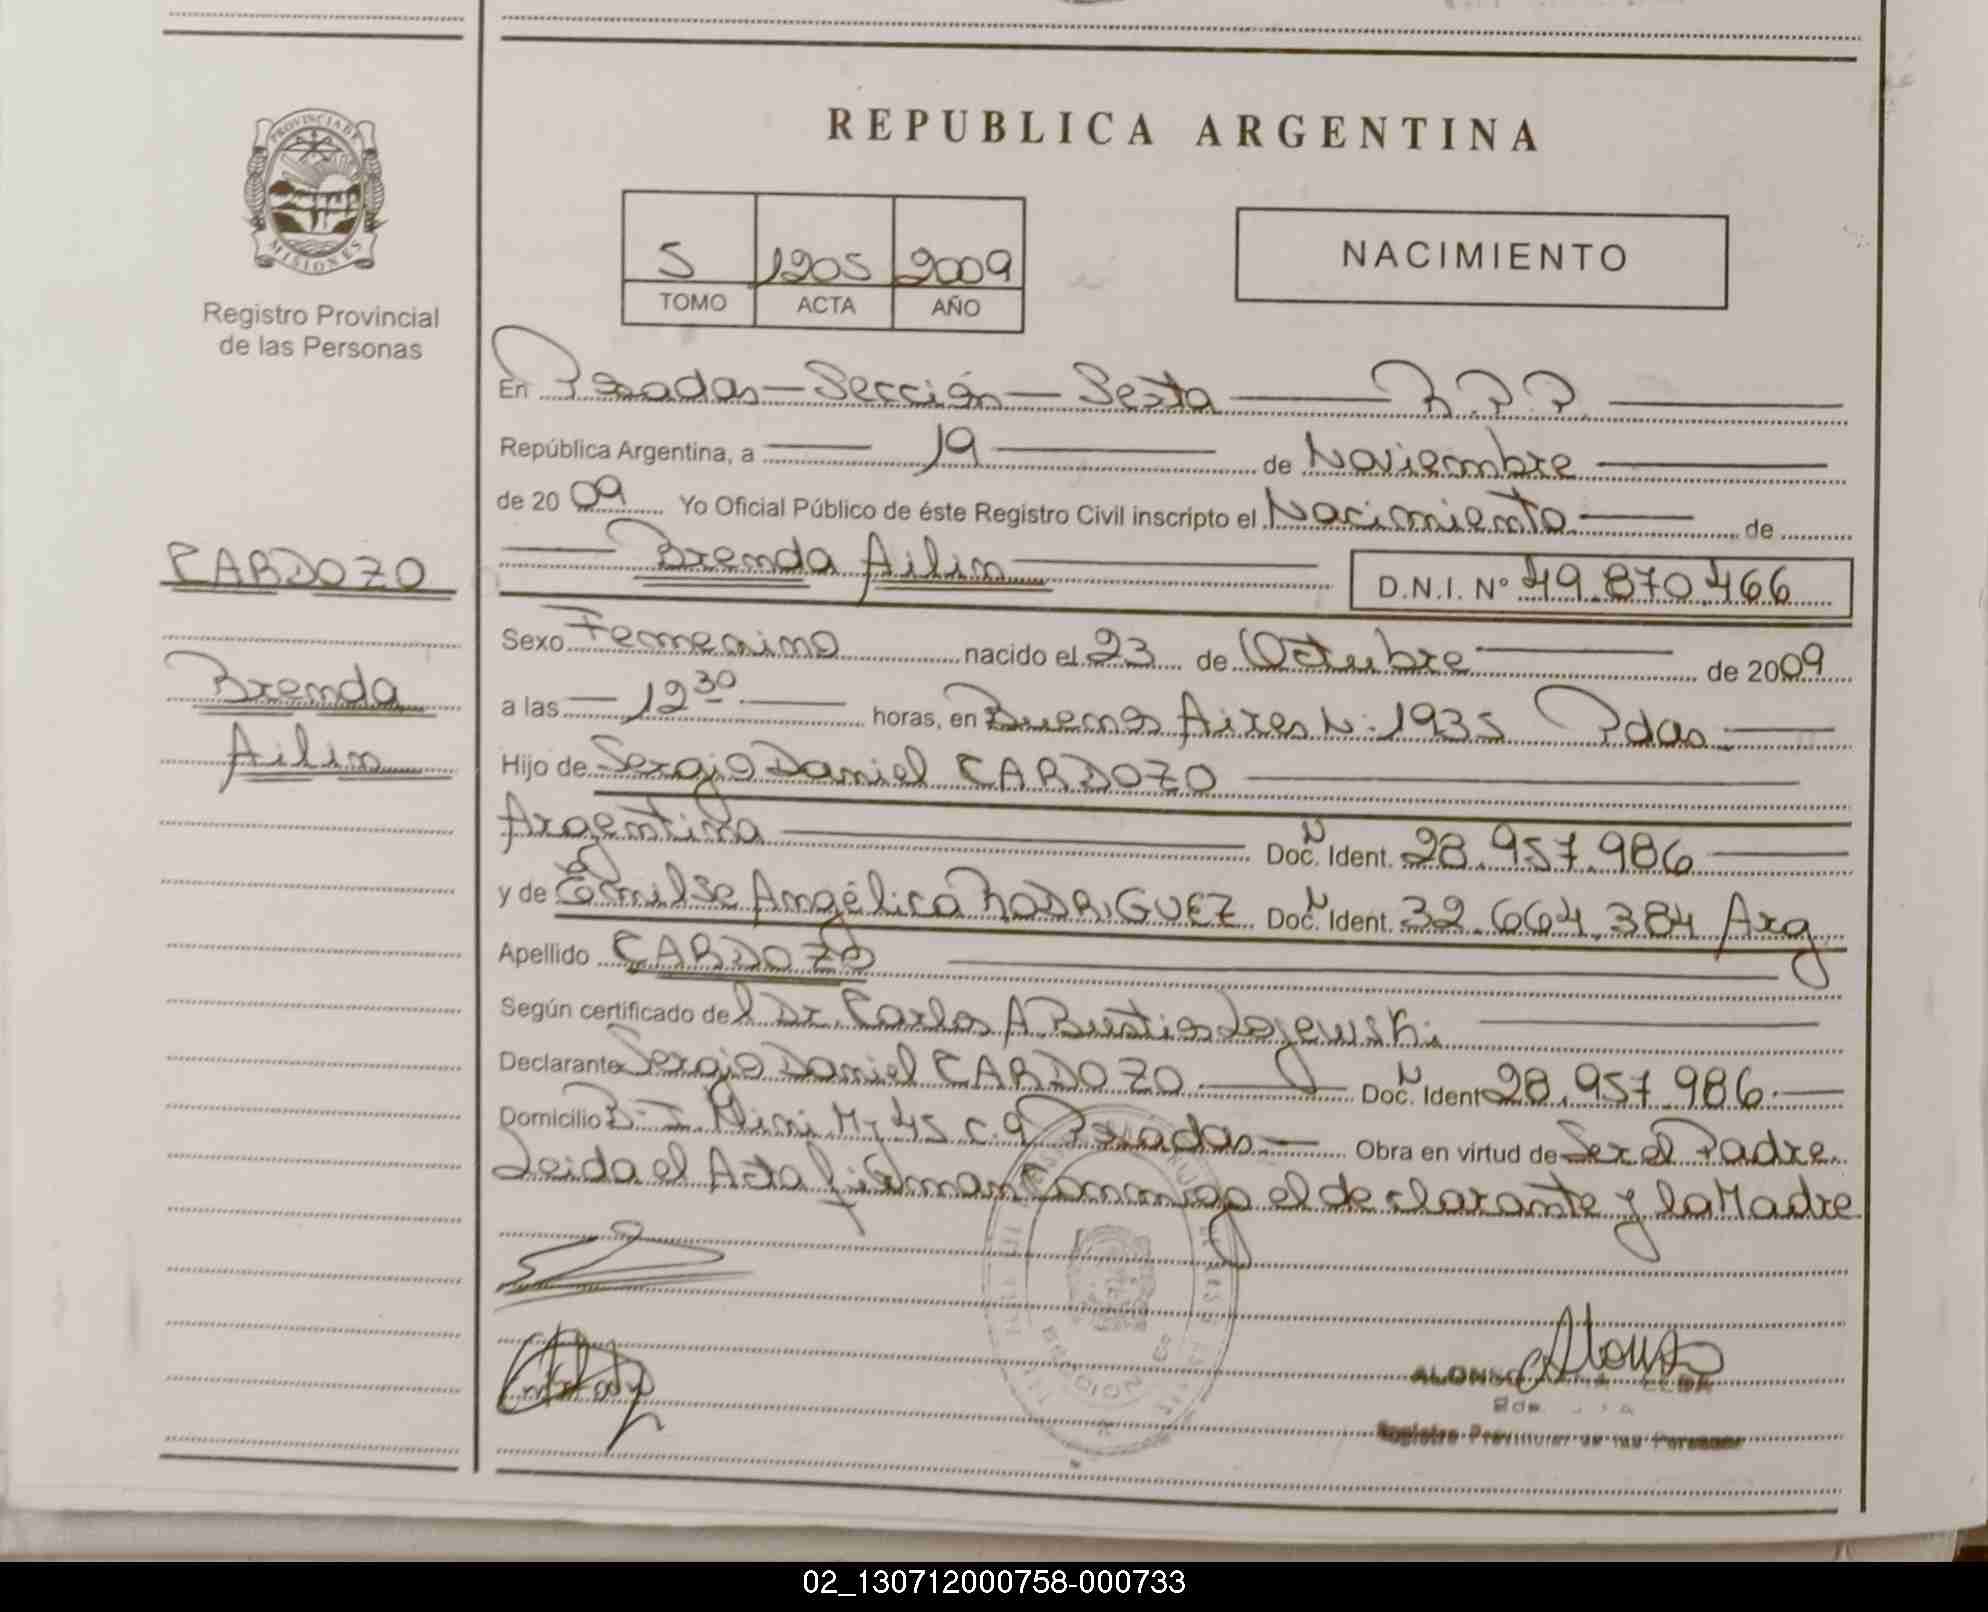 PROVINCIA DE
MISIONES
Registro Provincial
de las Personas
CARDOZO
Brenda
Ailin
REPUBLICA ARGENTINA
5 1205 2009
TOMO ACTA AÑO
NACIMIENTO
En Posadas - Sección - Sexta R.P.P.
República Argentina, a 19 de Noviembre
de 2009 Yo Oficial Público de éste Registro Civil inscripto el Nacimiento de
Brenda Ailin D.N.I. Nº 49.870.466
Sexo Femenino nacido el 23 de Octubre de 2009
a las 12 30 horas, en Buenos Aires N: 1935 Pdas
Hijo de Sergio Daniel CARDOZO
Argentina Doc. N Ident. 28.957.986
y de Emilse Angélica RODRIGUEZ Doc. N Ident. 32.664.384 Arg
Apellido CARDOZO
Según certificado del Dr. Carlos A Bustios Lojewski
Declarante Sergio Daniel CARDOZO Doc. N Ident 28.957.986
Domicilio B- I. Mz 45 c.9 Posadas Obra en virtud de Ser el Padre
Leida el Acta firman Conmigo el declarante y la Madre
ALONSO
Registro Provincial de las Personas
02_130712000758-000733